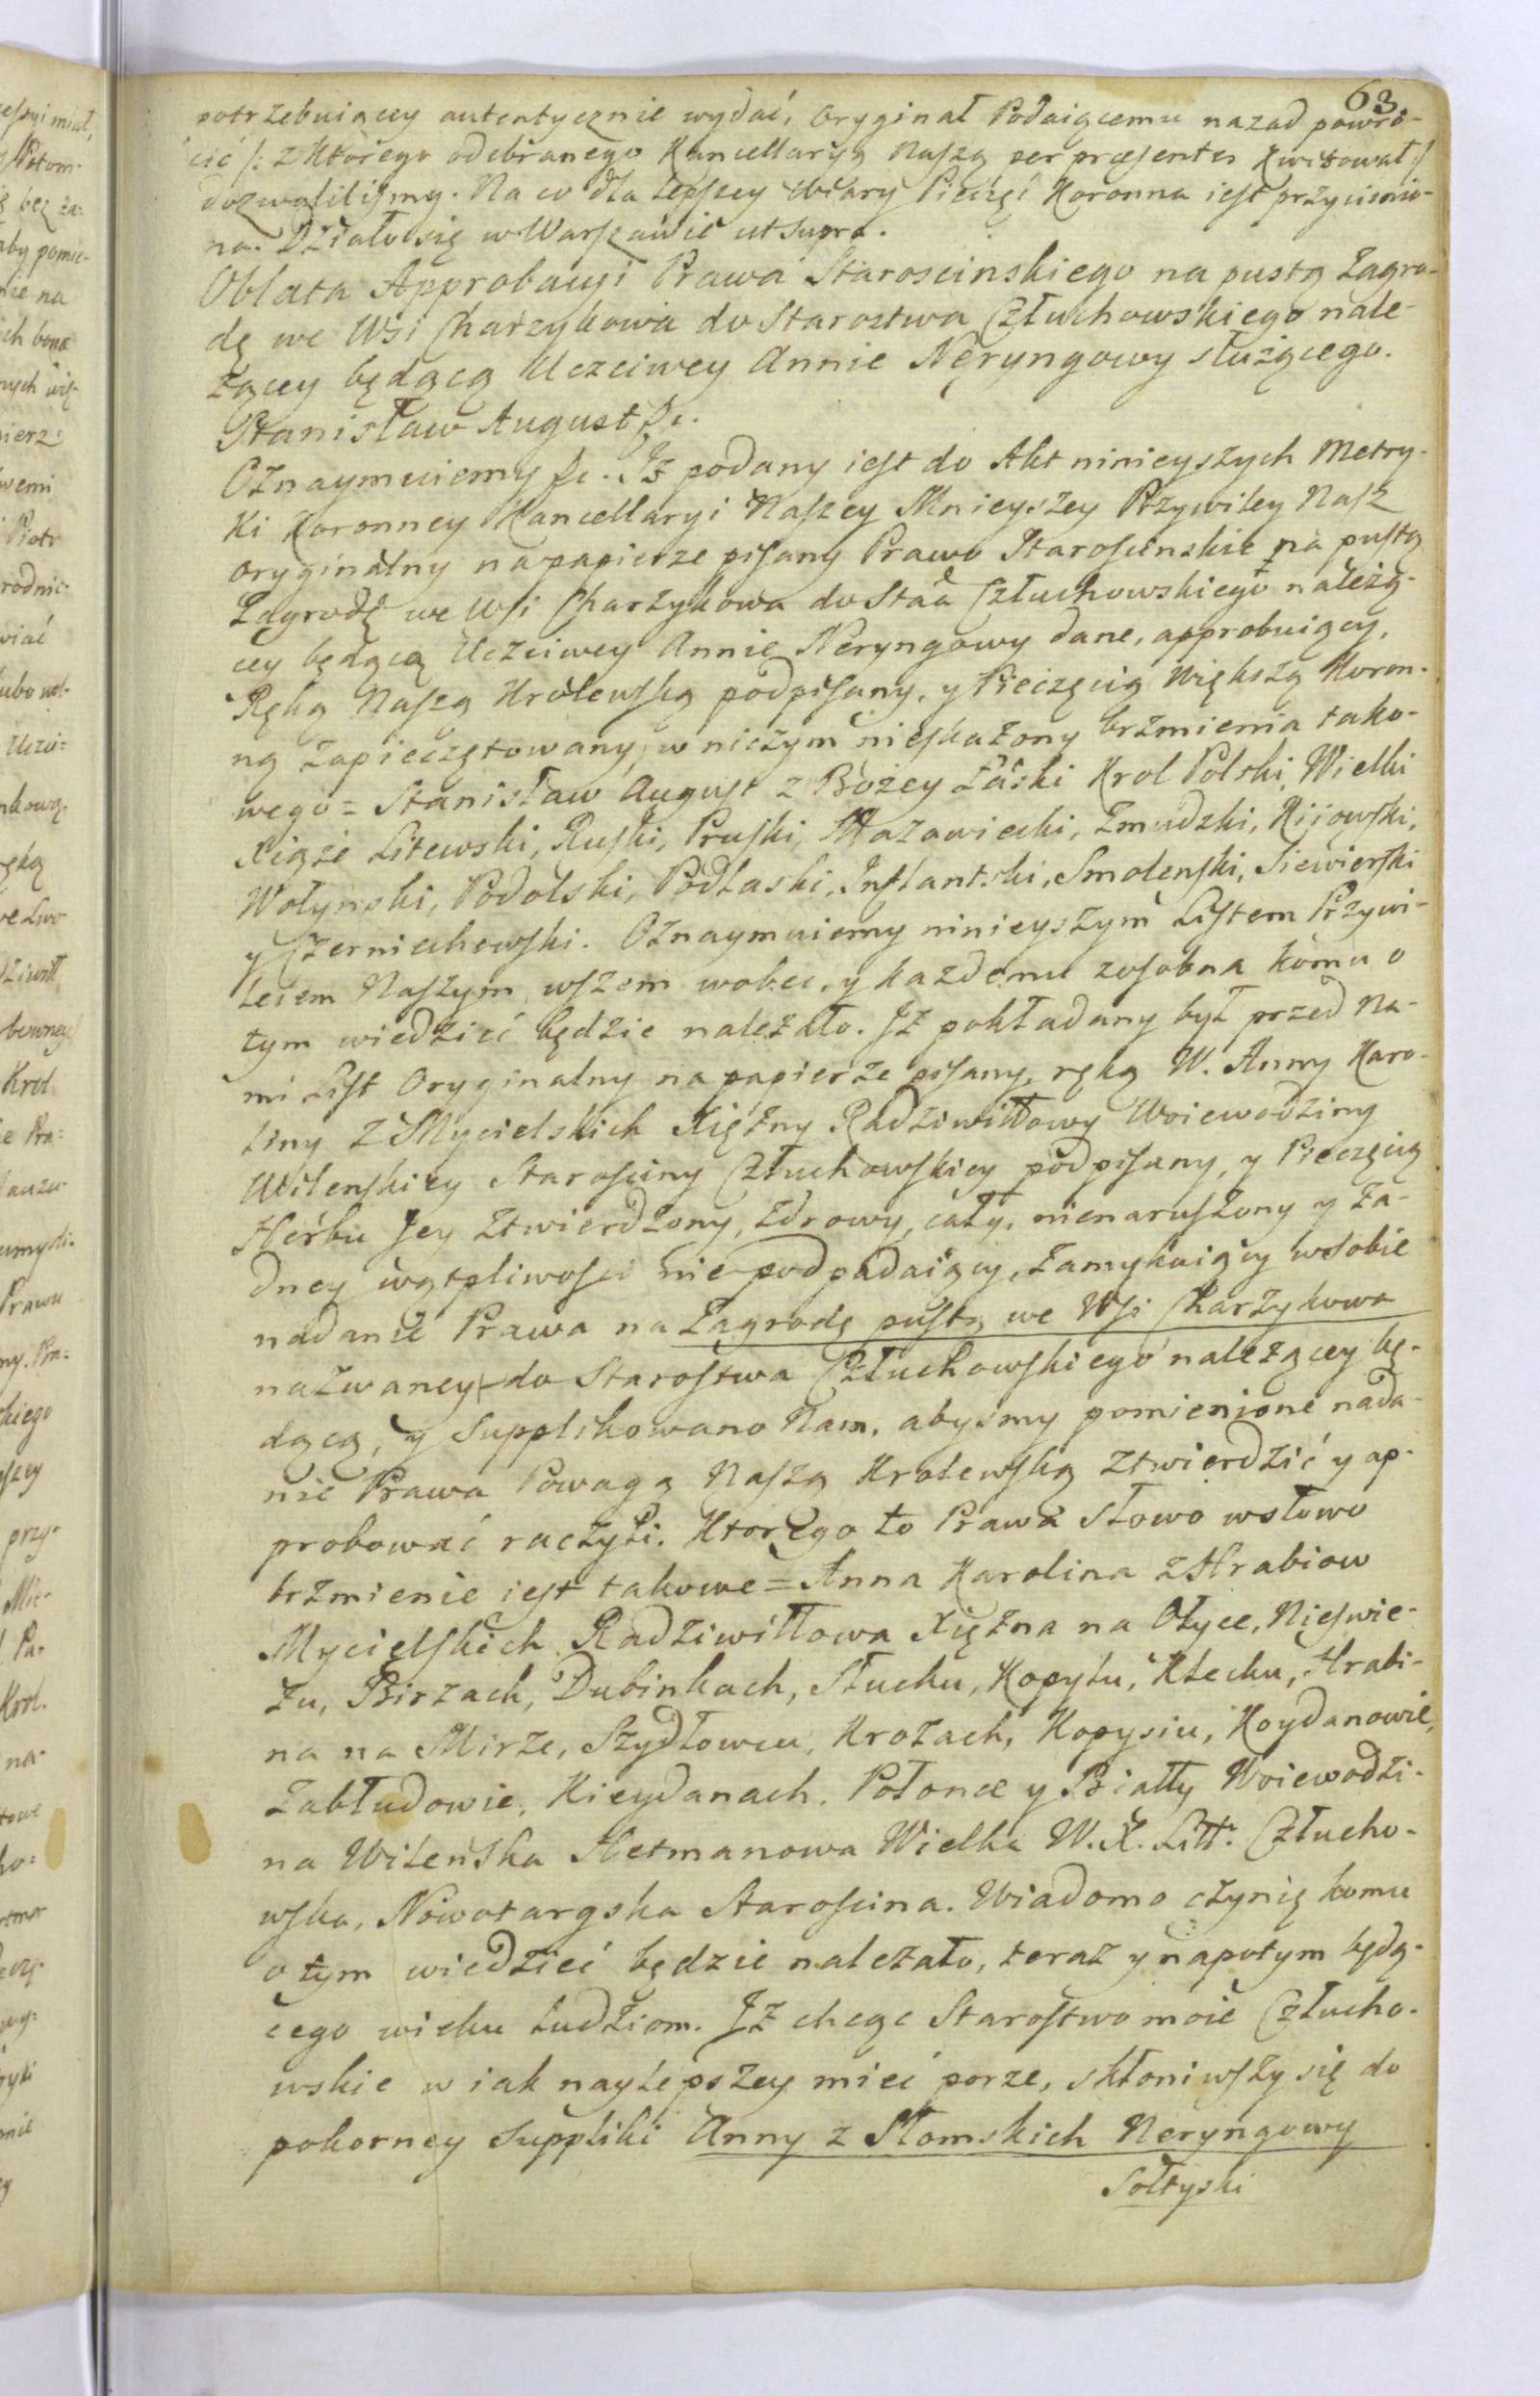 63.
potrzebuiącey autentycznie wydać, Oryginał Podaiącemu nazad powro-
cić /: z ktorego odebranego Kancellaryą Naszą per præsentes kwitował :/
dozwoliliśmy. Na co dla lepszey wiary Pieczęć Koronna iest przyciśnio-
na. Działo się w Warszawie ut supra.
Oblata Approbacyi Prawa Starościnskiego na pustą Zagro-
dę we Wsi Charzykowa do Starostwa Człuchowskiego nale-
żącey będącą Uczciwey Annie Neryngowy służącego.
Stanisław August &c.
Oznaymuiemy &c. Iż podany iest do Akt ninieyszych Metry-
ki Koronney Kancellaryi Naszey Mnieyszey Przywiley Nasz
oryginalny na papierze pisany Prawo Starościnskie na pustą
Zagrodę we Wsi Charzykowa do Stãa Człuchowskiego należą-
cey będącą Uczciwey Annie Neryngowy dane, approbuiący,
Ręką Naszą Krolewską podpisany, y Pieczęcią Większą Koron-
ną zapieczętowany, w niczym nieskażony brzmienia tako-
wego = Stanisław August z Bożey Łaski Krol Polski, Wielki
Xiąże Litewski, Ruski, Pruski, Mazowiecki, Żmudzki, Kijowski,
Wołynski, Podolski, Podlaski, Inflantski, Smolenski, Siewierski
y Czerniechowski. Oznaymuiemy ninieyszym Listem Przywi-
leiem Naszym, wszem wobec, y każdemu zosobna komu o
tym wiedzieć będzie należało. Iż pokładany był przed Na-
mi List Oryginalny na papierze pisany, ręką W. Anny Karo-
liny z Mycielskich Xiężny Radziwiłłowy Woiewodziny
Wilenskiey Starościny Człuchowskiey podpisany, y Pieczęcią
Herbu Jey ztwierdzony, zdrowy, cały, nienaruszony y ża-
dney wątpliwości niepodpadaiący, zamykaiący w sobie
nadanie Prawa na Zagrodę pustą we Wsi Charzykowa
nazwaney do Starostwa Człuchowskiego należącey bę-
dącą, y Supplikowano Nam, abyśmy pomienione nada-
nie Prawa Powagą Naszą Krolewską ztwierdzić y ap-
probować raczyli. Ktorego to Prawa słowo w słowo
brzmienie iest takowe = Anna Karolina z Hrabiow
Mycielskich Radziwiłłowa Xiężna na Ołyce, Nieswie-
żu, Birzach, Dubinkach, Słucku, Kopylu, Klecku, Hrabi-
na na Mirze, Szydłowcu, Krożach, Kopysiu, Koydanowie,
Zabłudowie, Kieydanach, Połonce y Białły Woiewodzi-
na Wileńska Hetmanowa Wielka W. X. Litt. Człucho-
wska, Nowotargska Starościna. Wiadomo czynię komu
o tym wiedzieć będzie należało, teraz y napotym będą-
cego wieku ludziom. Iż chcąc Starostwo moie Człucho-
wskie w iak naylepszey mieć porze, skłoniwszy się do
pokorney suppliki Anny z Słomskich Neryngowy
Sołtyski